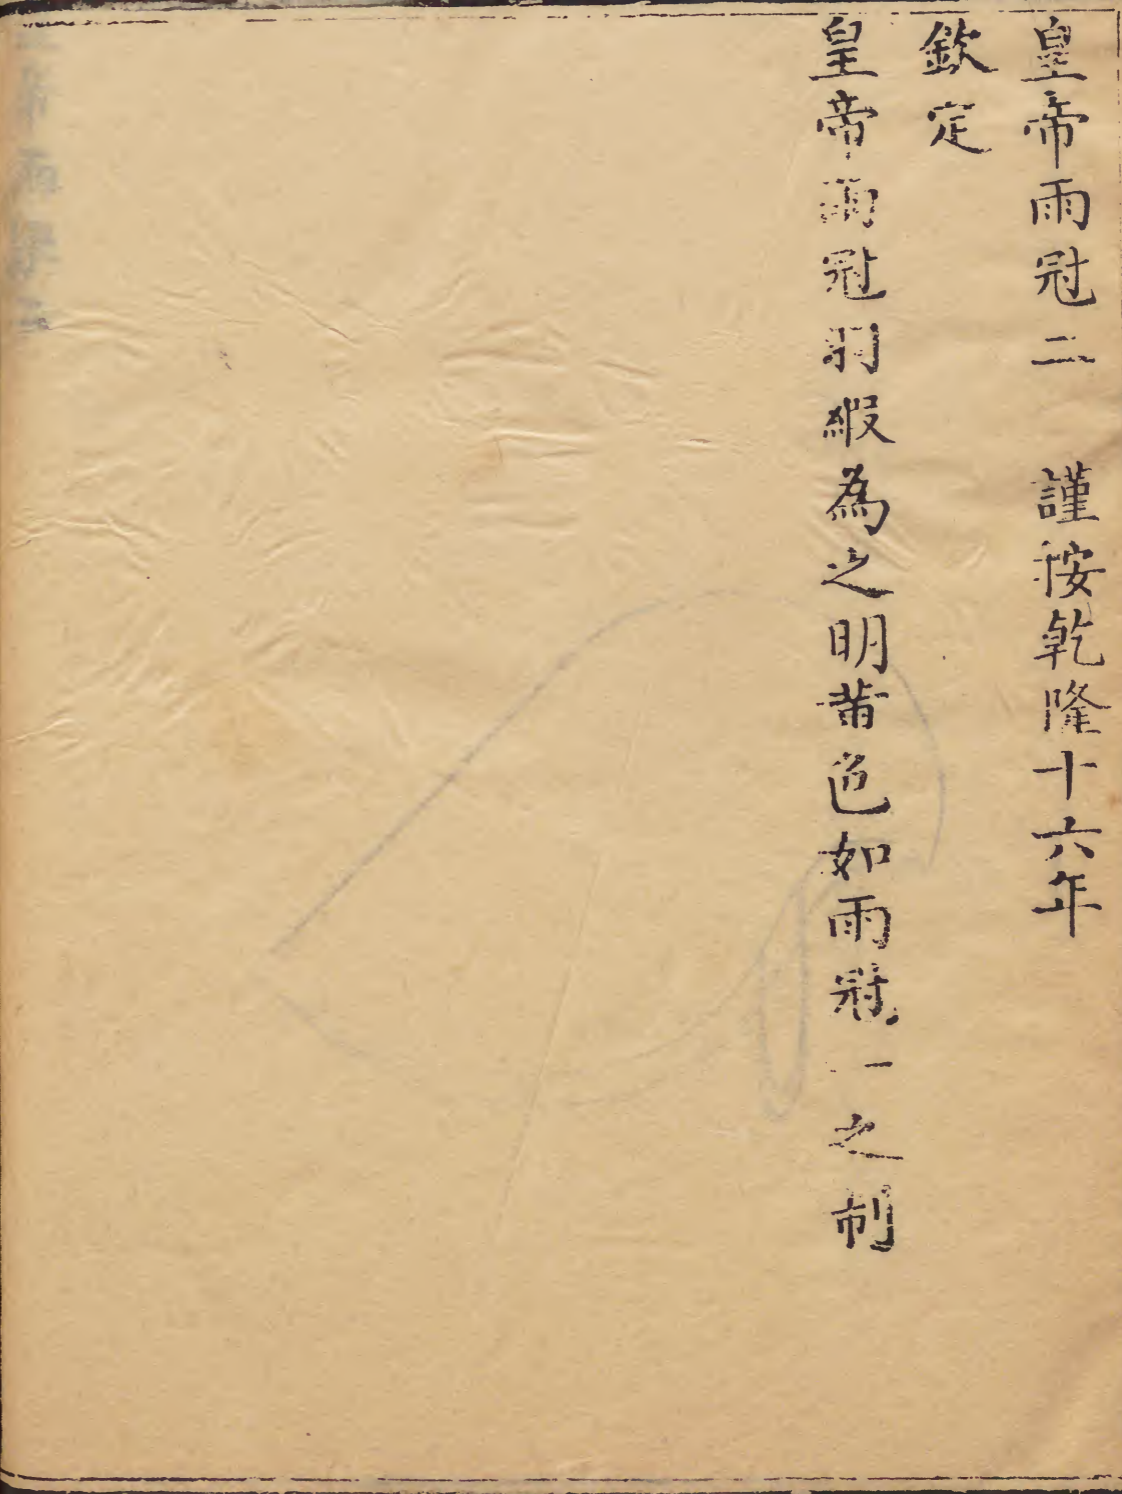 皇帝雨冠二　謹按乾隆十六年
欽定
皇帝雨冠羽緞為之明黃色如雨冠一之制